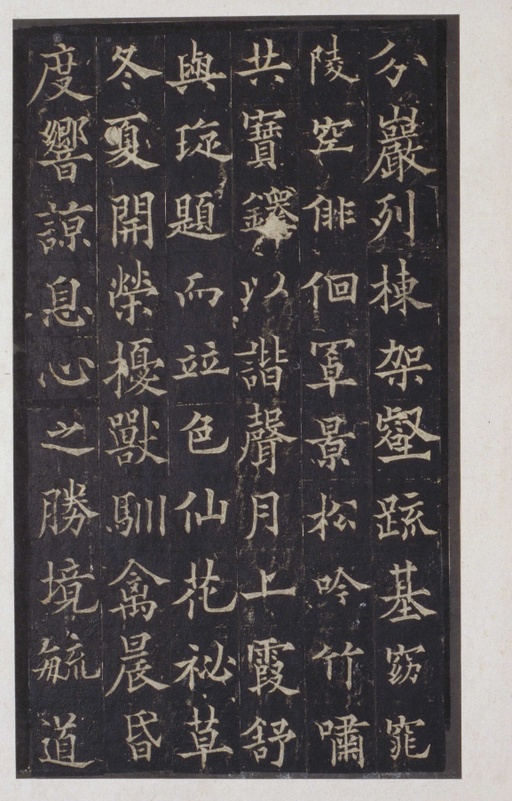 分巖列棟架壑疏基窈窕
陵空俳佪罩景松吟竹嘯
共寶鐸以諧聲月上霞舒
與琁題而竝色仙花祕草
冬夏開榮擾獸馴禽晨昏
度響諒息心之勝境毓道